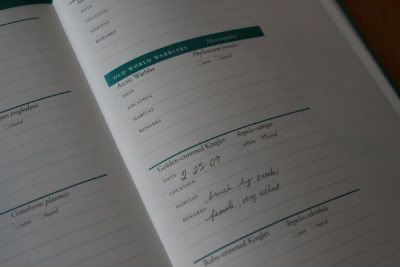 DATE
LOCATION
HABITAT
REMARKS
OLD WORLD WARBLERS
Arctic Warbler
Phylloscopus borealis
seen heard
DATE
LOCATION
HABITAT
REMARKS
Golden-crowned Kinglet
Regulus satrapa
seen heard
DATE 2-25-09
LOCATION
HABITAT brush by creek
REMARKS female, very
Ruby-crowned Kinglet
Regulus calendula
seen heard
troglodytes
seen heard
Cistothorus platensis
seen heard